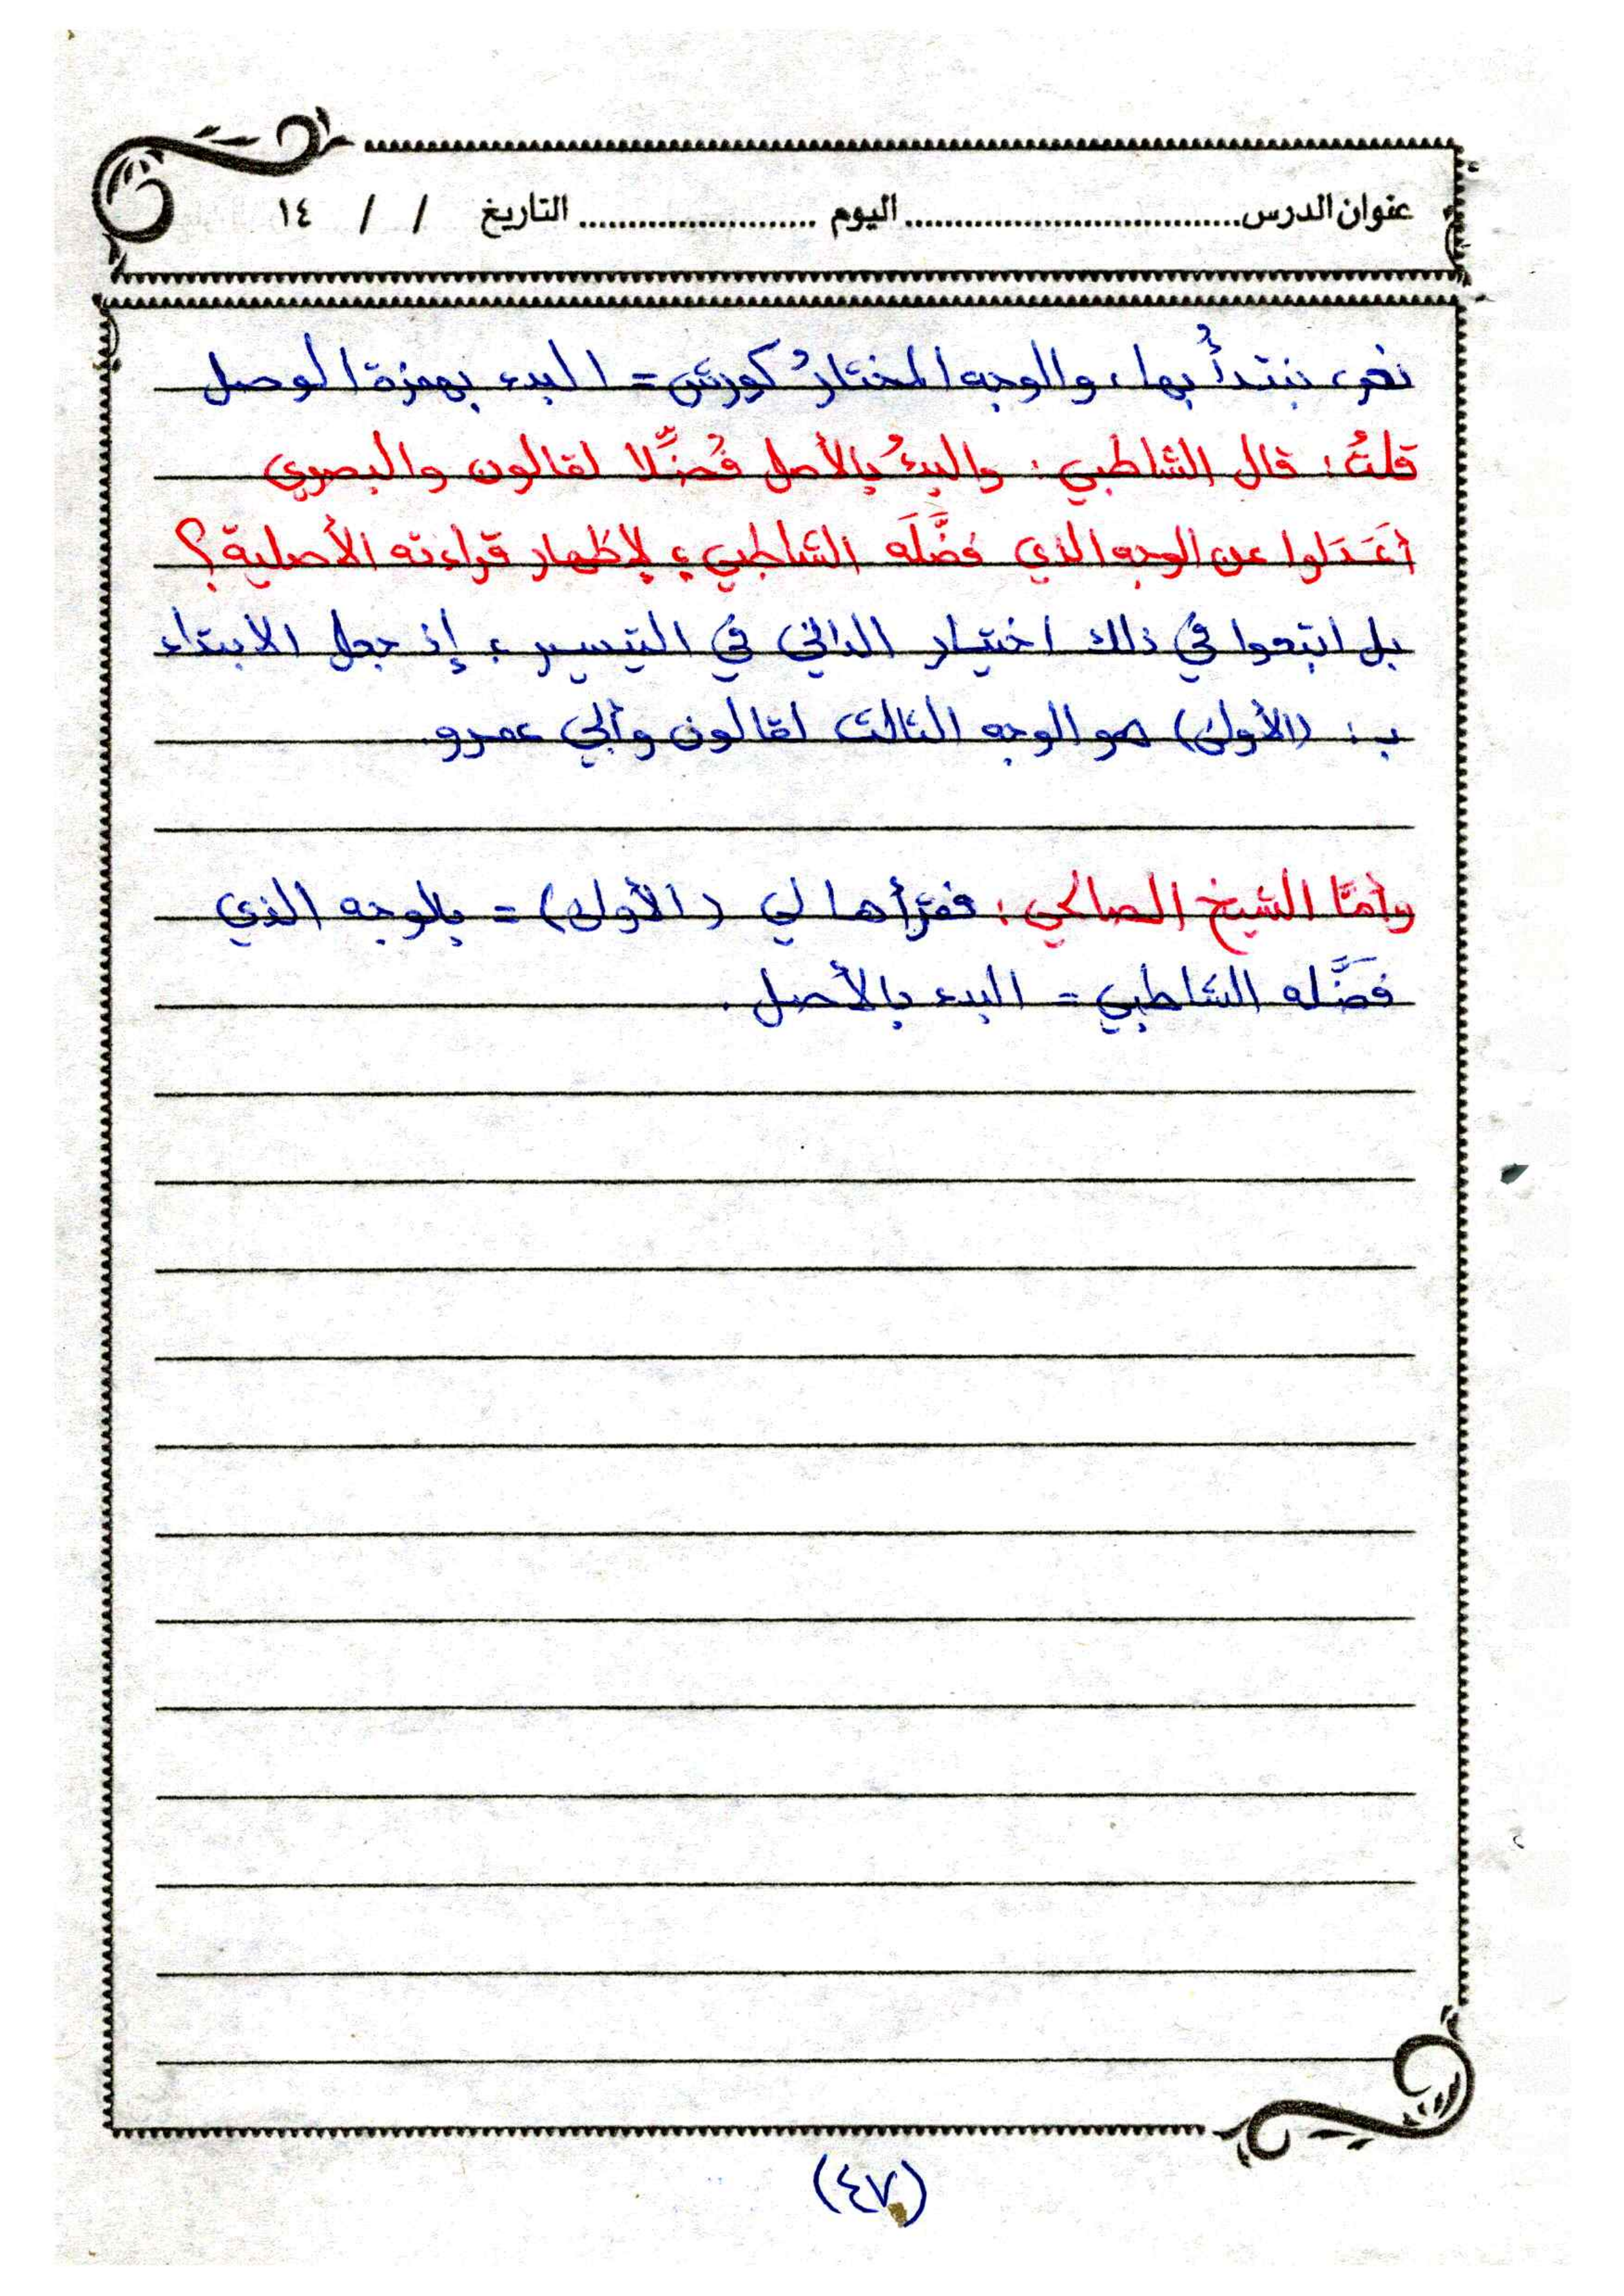 عنوان الدرس.................................اليوم ........................التاريخ / / ١٤
نعم، نبتدأُ بها، والوجه المختارُ كورش = البدء بهمزة الوصل
قلتُ: قال الشاطبي: والبدءُ بالأصل فُضِّلا لقالون والبصري
أعَدَلوا عن الوجه الذي فضَّلَه الشاطبي؛ لإظهار قراءته الأصلية؟
بل اتبعوا في ذلك اختيار الداني في التيسير؛ إذ جعل الابتداء
بـ: (الأولى) هو الوجه الثالث لقالون وأبي عمرو.
وأمَّا الشيخ الصالحي: فقرأها لي (الأولى) = بالوجه الذي
فضَّله الشاطبي = البدء بالأصل.
(٤٧)